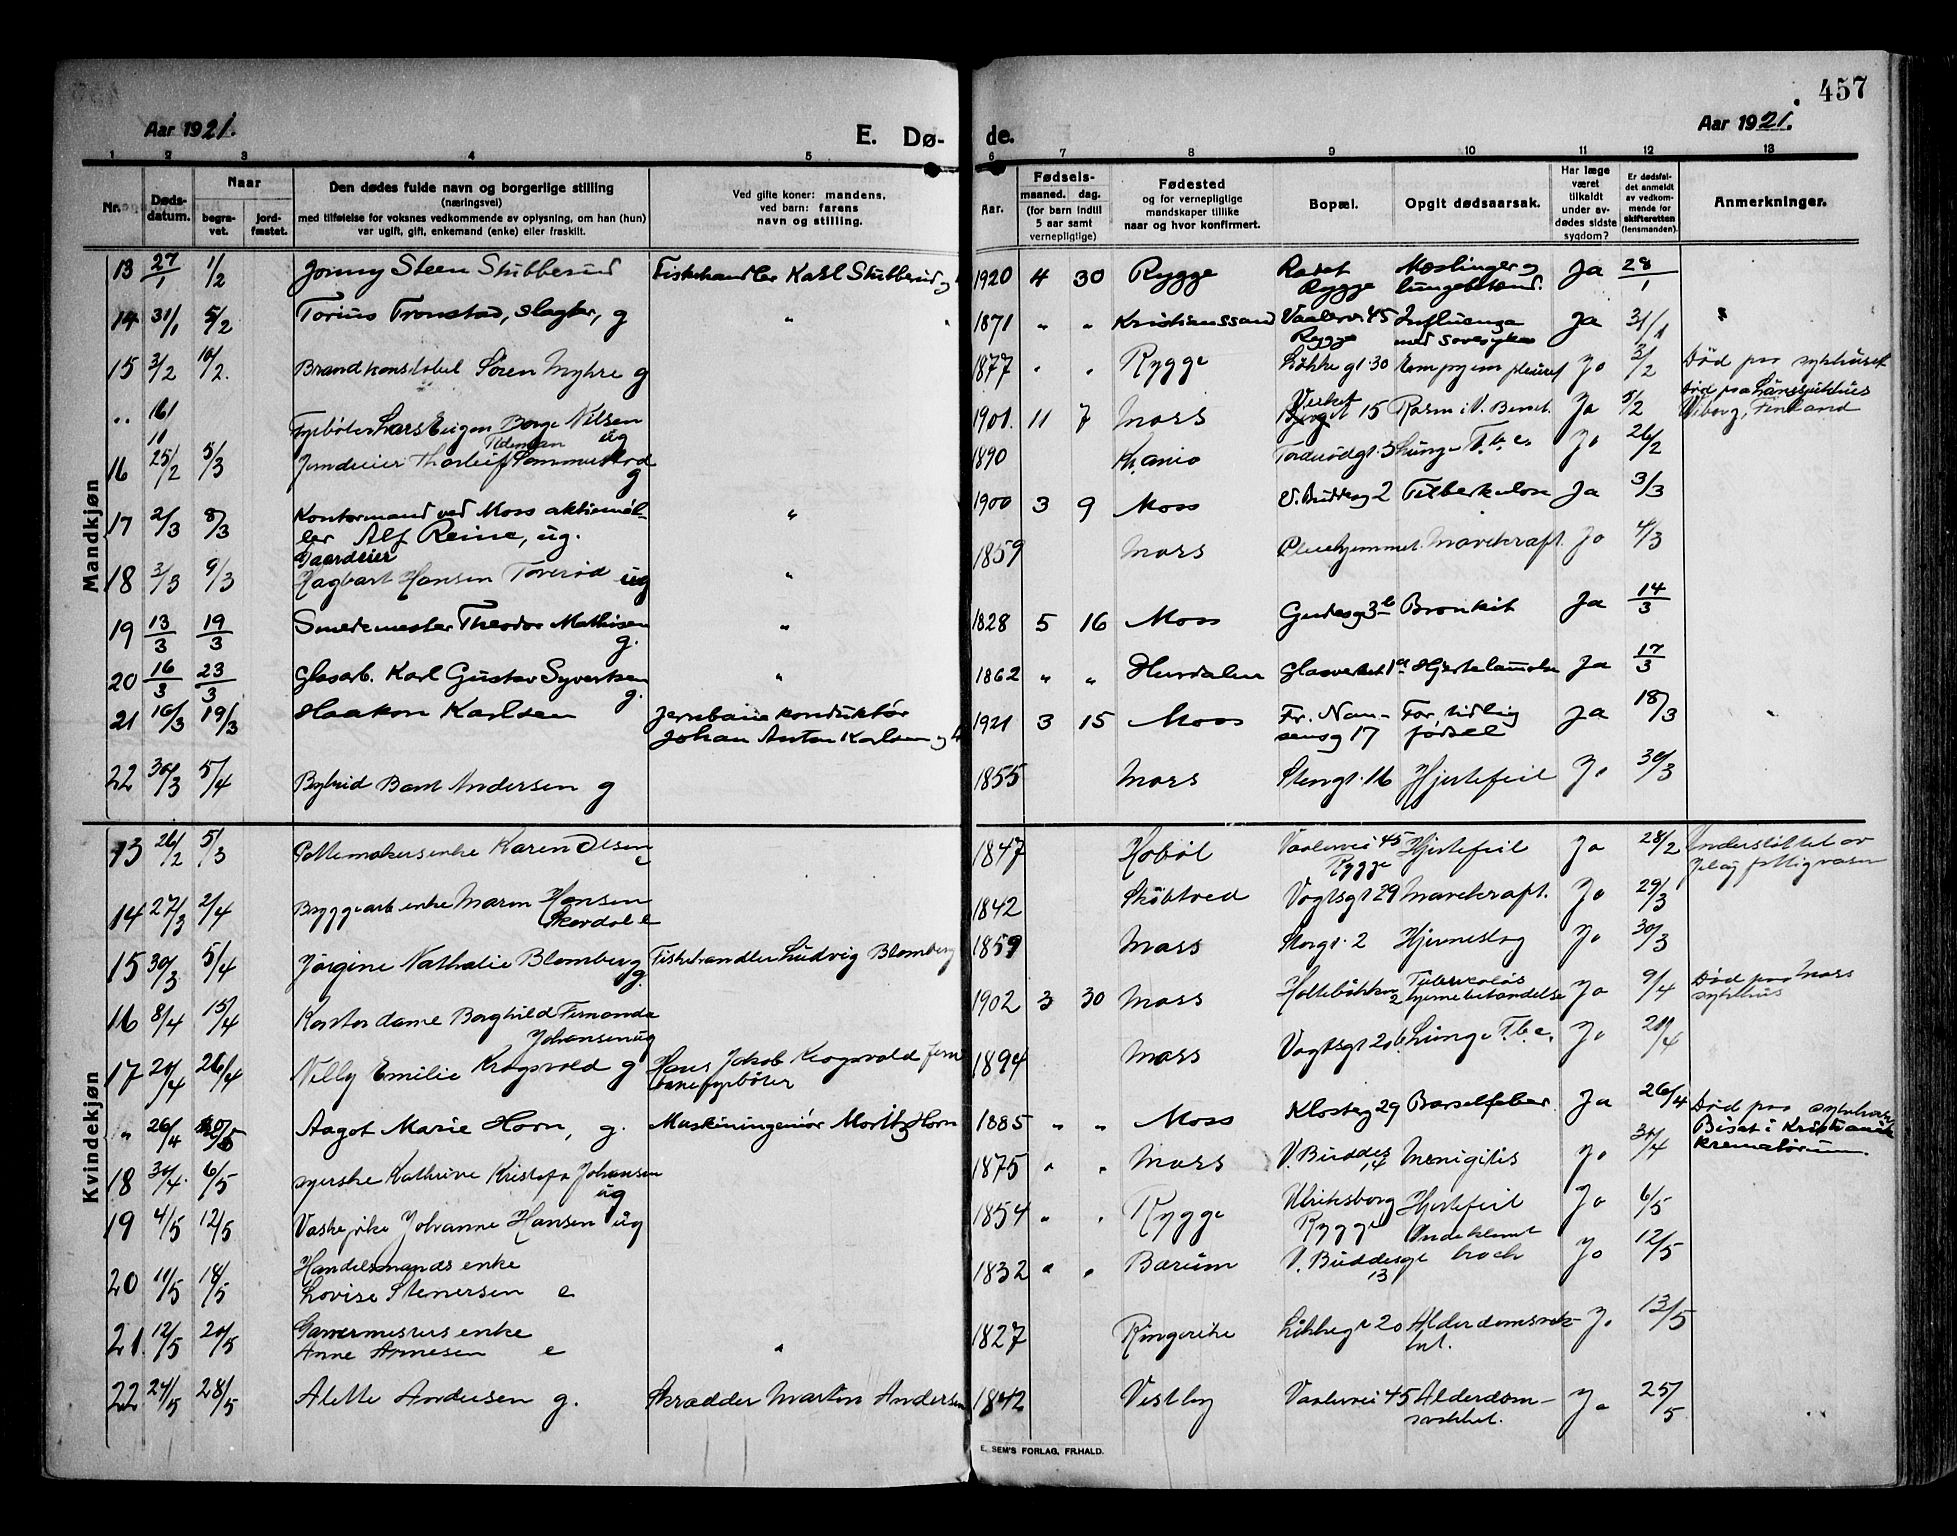 457
Aar 1921.
E. Dø-
de.
Aar 1921.
1 2 3 4 5 6 7 8 9 10 11 12 13
Nr. Dødsdatum. Naar begravet. jordfæstet.
Den dødes fulde navn og borgerlige stilling
(næringsvei)
med tilføielse for voksnes vedkommende av oplysning, om han (hun)
var ugift, gift, enkemand (enke) eller fraskilt.
Ved gifte koner: mandens,
ved barn: farens
navn og stilling.
Aar.
Fødsels-
maaned. dag.
(for barn indtil
5 aar samt
vernepligtige)
Fødested
og for vernepligtige
mandskaper tillike
naar og hvor konfirmert.
Bopæl.
Opgit dødsaarsak.
Har læge
været
tilkaldt
under av-
dødes sidste
sygdom?
Er dødsfal-
det anmeldt
av vedkom-
mende for
skifteretten
(lensmanden).
Anmerkninger.
Mandkjøn
13 27/1 1/2 Jonny Steen Stubberud Fiskehandler Karl Stubberud og 1920 4 30 Rygge Rygge Mæslinger og Ja 28/1
14 31/1 5/2 Torius Tronstad, slagter, g " 1871 " " Kristianssand Vaalervei 45 Rygge Influenza med Ja 31/1 "
15 3/2 10/2. Brandkonstabel Søren Myhre g 1877 " " Rygge Løkkegt. 30 Empyem pleurae Ja 3/2 Død paa sykehuset
" Fyrbøter Lars Eugen Borge Nilsen ug 1901. 11 7 Moss 15 Ja 5/2 Død paa Länssjukhus
Viborg, Finland
16 25/2 5/3 Jerndreier Thorleif g 1890 Kr.ania Lunge T.b.c. Ja 26/2
17 2/3 8/3 Kontormand ved Moss aktiemøl-
ler Alf Reine, ug. " 1900 3 9 Moss V. Buddesg 2 Tuberkulose Ja 3/3
18 3/3 9/3 Gaardeier
Hagbart Hansen Toverød ug " 1859 Moss Pleiehjemmet. Mavekræft. Ja 4/3
19 13/3 19/3 Smedemester Theodor Mathisen g. " 1828 5 16 Moss Gudesg 3b Bronkit Ja 14/3
20 16/3 23/3 Glasarb. Karl Gustav Syvertsen g. " 1862 " " Hurdalen Glasverket 1a Hjertelammelse Ja 17/3
21 16/3 19/3 Haakon Karlsen Jernbanekonduktør
Johan Anton Karlsen og 1921 3 15 Moss Fr. Nan-
sensg 17 For tidlig
fødsel Ja 18/3
22 30/3 5/4 Andersen g 1855 Moss Stengt. 16 Hjertefeil Ja 30/3
Kvindekjøn
13 26/2 5/3 Pottemakerenke Karen Olsen e 1847 Hobøl Vaalervei 45
Rygge Hjertefeil Ja 28/2 Understøttet av
fattigvæsen
14 27/3 2/4 Bryggearb enke Maren Hansen
Skardal e 1842 Skibtved Vogtsgt 29 Mavekræft. Ja 29/3
15 30/3 5/4 Jørgine Nathalie Blomberg g. Fiskehandler Ludvig Blomberg 1859 Moss Storgt. 2 Hjerneslag Ja 30/3
16 8/4 15/4 Kontordame Borghild Fernanda
Johansen ug 1902 3 30 Moss Holtebakken 2 Tuberkuløs
hjernebetændelse Ja 9/4 Død paa Moss
sykehus
17 20/4 26/4 Nelly Emilie Krogsvold g Hans Jakob Krogsvold Jern
banefyrbøter 1894 Moss Vogtsgt 20 b. Lunge T.b.c. Ja 20/4
" 26/4 Aagot Marie Horn, g. Maskiningeniør Moritz Horn 1885 " " Moss Klosterg 29 Barselfeber Ja 26/4 Død paa sykehuset
Biset i Kristiania
krematorium.
18 30/4. 6/5 syerske Kathrine Kristofa Johansen ug 1875 " " Moss V. Buddes
14 Menigitis Ja 30/4
19 4/5 12/5 Vaskepike Johanne Hansen ug 1854 " " Rygge Ulriksborg
Rygge Hjertefeil Ja 6/5
20 11/5 18/5 Handelsmands enke
Lovise Stenersen e 1832 " " Bærum V. Buddesgt
13 Indeklemt
brock Ja 12/5
21. 12/5 20/5 Garvermesters enke
Anne Arnesen e " 1827 Ringerike Løkkegt 20 Alderdomsvæk-
ket. Ja 13/5
22 24/5 28/5 Alette Andersen g. Skrædder Martin Andersen 1842 Vestby Vaalervei 45 Alderdom-
svækket. Ja 25/5
E. SEM'S FORLAG, FR.HALD.